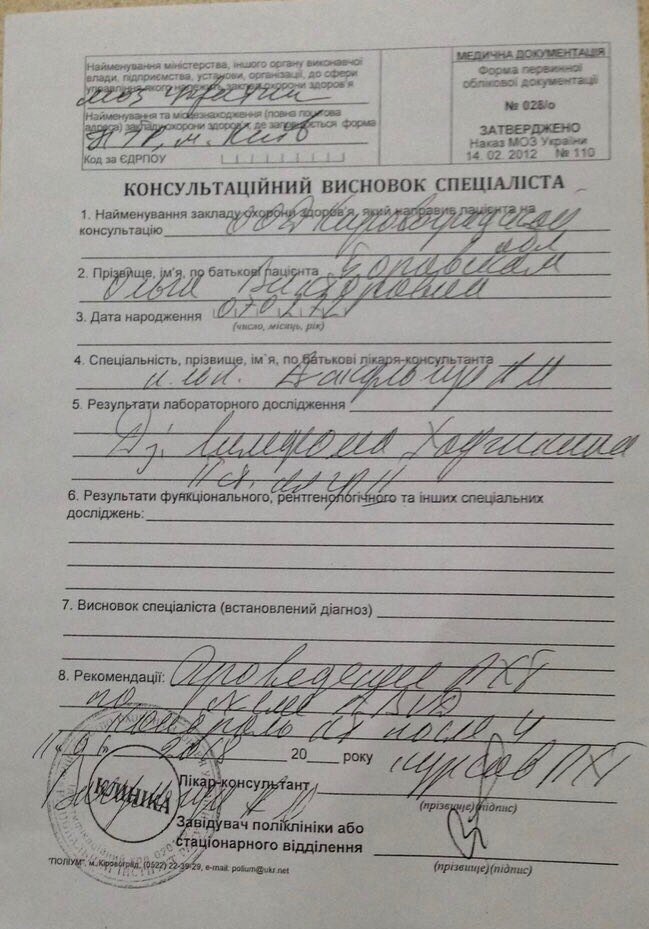 Найменування міністерства, іншого органу виконавчої
влади, підприємства, установи, організації, до сфери
управління якого належить заклад охорони здоров'я
МОЗ України
Найменування та місцезнаходження (повна поштова
адреса) закладу охорони здоров'я, де заповнюється форма
м. Київ
Код за ЄДРПОУ
МЕДИЧНА ДОКУМЕНТАЦІЯ
Форма первинної
облікової документації
№ 028/о
ЗАТВЕРДЖЕНО
Наказ МОЗ України
14. 02. 2012 № 110
КОНСУЛЬТАЦІЙНИЙ ВИСНОВОК СПЕЦІАЛІСТА
1. Найменування закладу охорони здоров'я, який направив пацієнта на
консультацію ООД Кировоградский
2. Прізвище, ім'я, по батькові пацієнта
Ольга Викторовна
3. Дата народження 070272
(число, місяць, рік)
4. Спеціальність, прізвище, ім`я, по батькові лікаря-консультанта
5. Результати лабораторного дослідження
Дз. Лимфома Ходжкина
II ст.
6. Результати функціонального, рентгенологічного та інших спеціальних
досліджень:
7. Висновок спеціаліста (встановлений діагноз)
8. Рекомендації: Проведение ПХТ
по схеме ABVD
контроль после 4
2018 20 року курсов ПХТ
КЛИНИКА
Лікар-консультант
(прізвище) (підпис)
Завідувач поліклініки або
стаціонарного відділення
(прізвище) (підпис)
"ПОЛІУМ", м. Кіровоград, (0522) 22-39-29, e-mail: polium@ukr.net